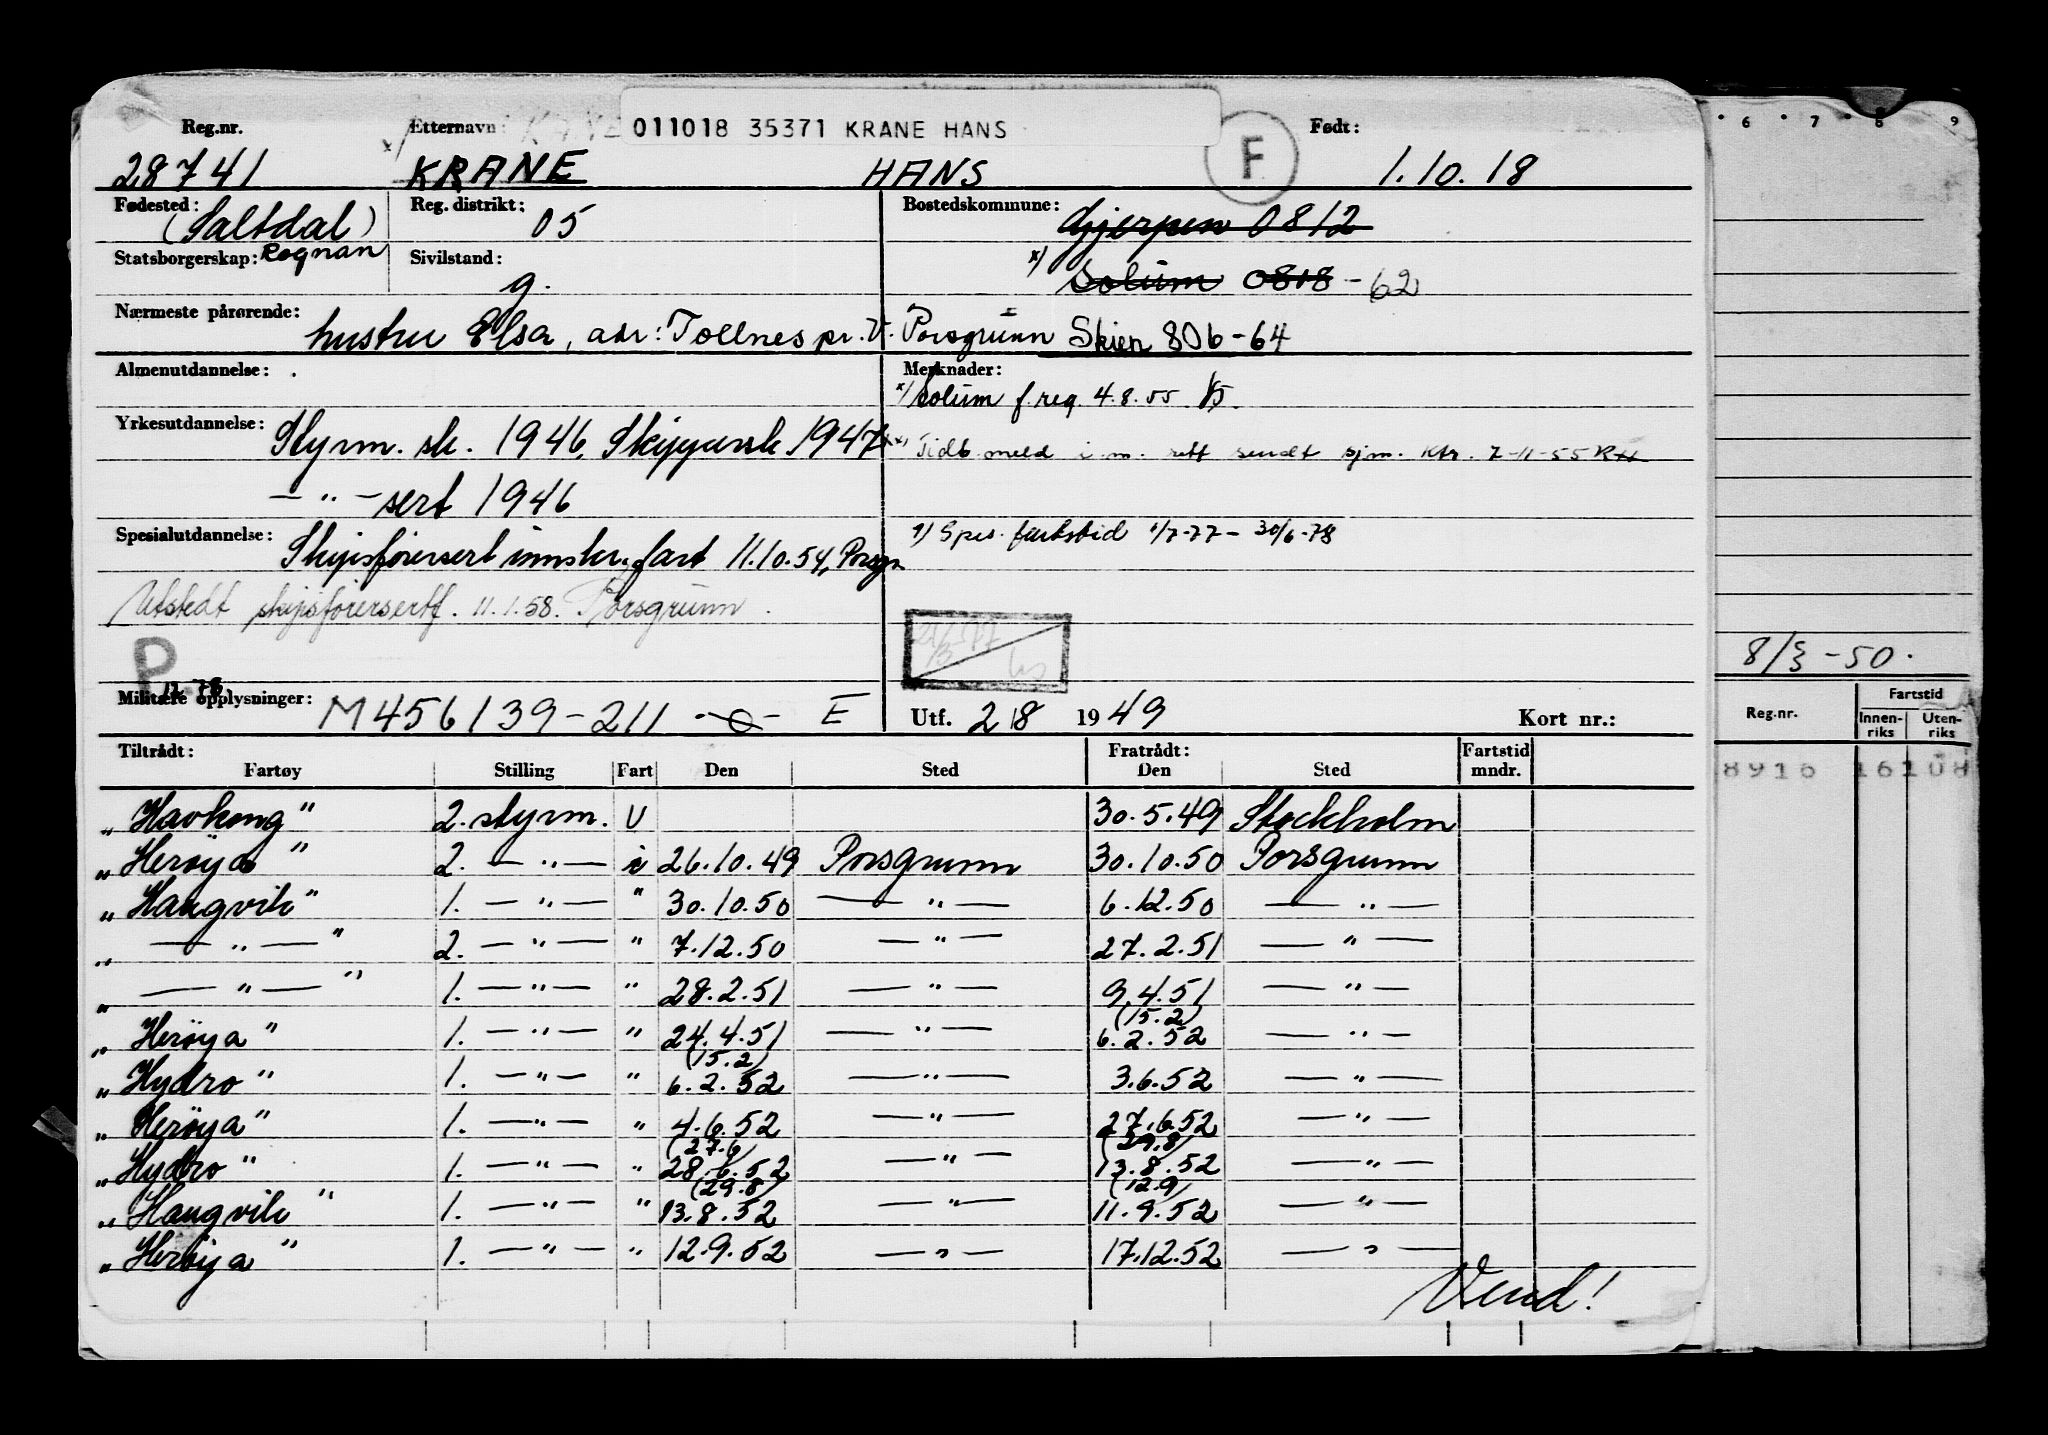 Reg.nr. Etternavn: 011018 35371 KRANE HANS F Født:
28741 x/ KRANE HANS 1.10.18
Fødested: (Saltdal) Reg. distrikt: 05 Bostedskommune: Gjerpen 0812
Statsborgerskap: Rognan Sivilstand: g. x/ Solum 0818 - 62
Nærmeste pårørende: hustru Elsa, adr: Tollnes pr. V. Porsgrunn Skien 806-64
Almenutdannelse: Merknader:
x/ Solum f.reg. 4.8.55
Yrkesutdannelse: Styrm. sk. 1946, Skippersk. 1947 Tidb. meld i.m. sendt sjm. ktr. 7-11-55
— " — sert 1946
Spesialutdannelse: Skipsførersert innskr. fart 11.10.54, Porsgr. 1) Spes. fartstid 1/7-77 - 30/6-78
Utstedt skipsførersertf. 11.1.58. Porsgrunn.
P 12.78
Militære opplysninger: M456139-211 -o- E Utf. 2/8 1949 Kort nr.:
Tiltrådt: Fratrådt: Fartstid
Fartøy Stilling Fart Den Sted Den Sted mndr.
„Havkong" 2. styrm. U 30.5.49 Stockholm
„Herøya" 2. — " — i 26.10.49 Porsgrunn 30.10.50 Porsgrunn
„Haugvik" 1. — " — " 30.10.50 — " — 6.12.50 — " —
„ — " — " 2. — " — " 7.12.50 — " — 27.2.51 — " —
„ — " — " 1. — " — " 28.2.51 — " — 9.4.51 — " —
(15.2)
„Herøya" 1. — " — " 24.4.51 — " — 6.2.52 — " —
(15.2)
„Hydro" 1. — " — " 6.2.52 — " — 3.6.52 — " —
„Herøya" 1. — " — " 4.6.52 — " — 27.6.52 — " —
(27.6) (29.8)
„Hydro" 1. — " — " 28.6.52 — " — 13.8.52 — " —
(29.8) (12.9)
„Haugvik" 1. — " — " 13.8.52 — " — 11.9.52 — " —
„Herøya" 1. — " — " 12.9.52 — " — 17.12.52 — " —
Vend!
6 7 8 9
8/3 - 50.
Reg.nr. Fartstid
Innen-riks Uten-riks
8916 16108